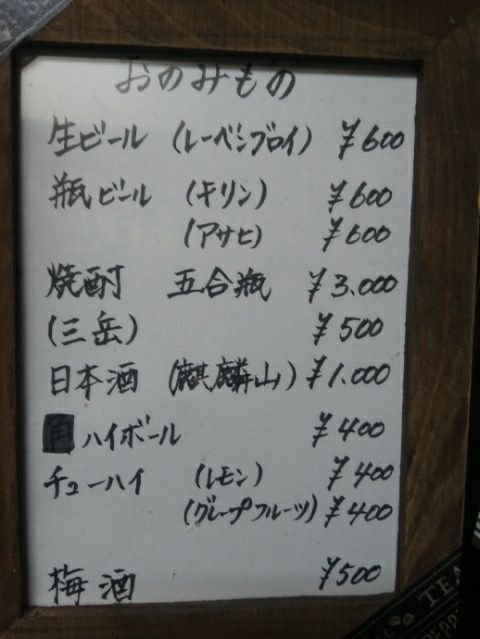 おのみもの
生ビール (レーベンブロイ) ¥600
瓶ビール (キリン) ¥600
(アサヒ) ¥600
焼酎 五合瓶 ¥3.000
(三岳) ¥500
日本酒 (麒麟山) ¥1.000
角ハイボール ¥400
チューハイ (レモン) ¥400
(グレープフルーツ) ¥400
梅酒 ¥500
TEA